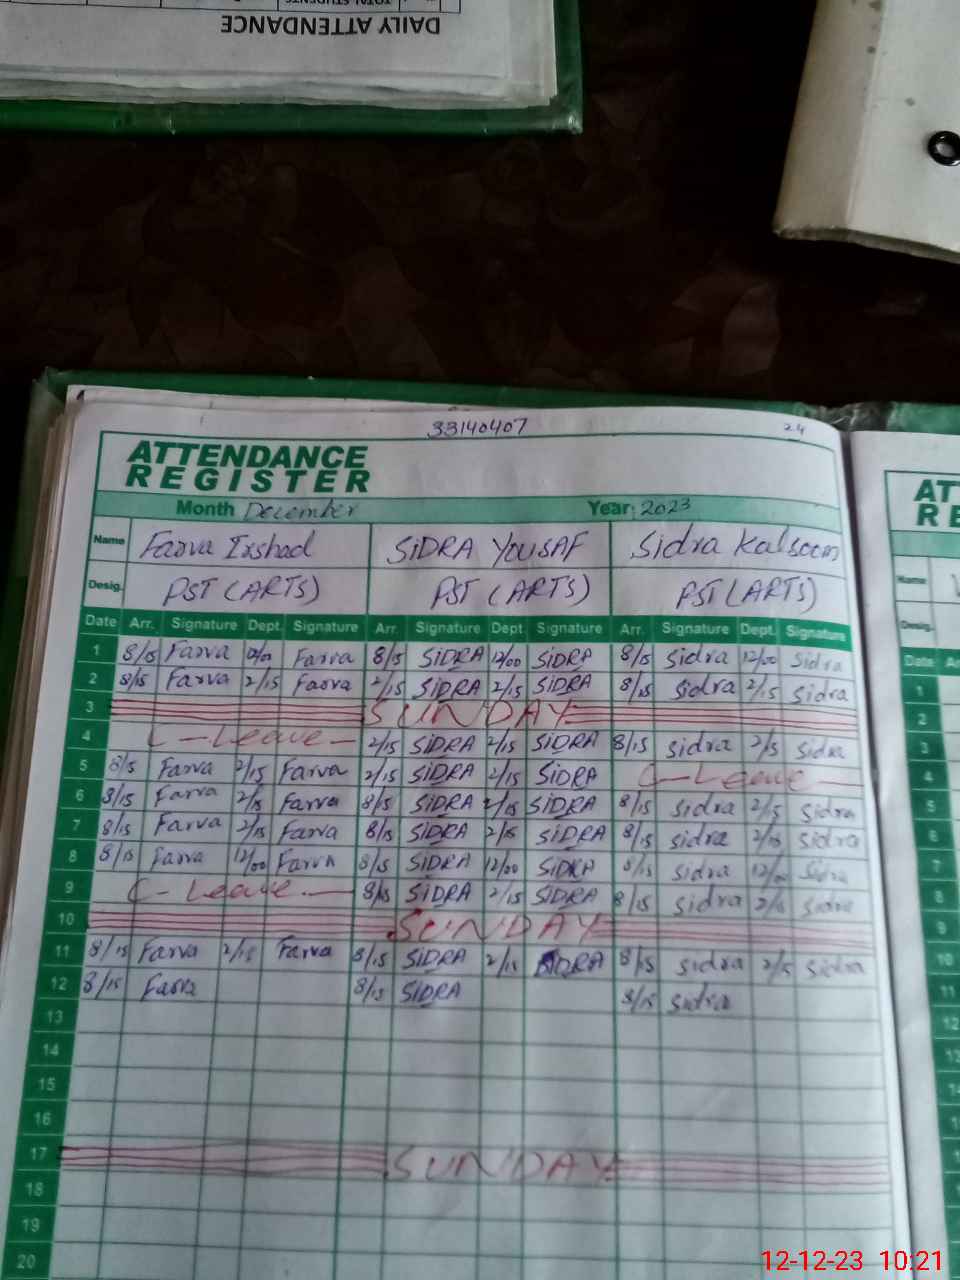 TOTAL STUDENTS
DAILY ATTENDANCE
33140407 24
ATTENDANCE
REGISTER
Month December Year 2023
Name Farva Irshad SiDRA YOUSAF Sidra Kalsoom
Desig. PST (ARTS) PST (ARTS) PST (ARTS)
Date Arr. Signature Dept. Signature Arr. Signature Dept Signature Arr. Signature Dept. Signature
1 8/15 Farva Farva 8/15 SiDRA 12/00 SiDRA 8/15 Sidra 12/00 Sidra
2 8/15 Farva 2/15 Farva 2/15 SiDRA 2/15 SiDRA 8/15 Sidra 2/15 Sidra
3 SUNDAY
4 C-Leave 2/15 SiDRA 2/15 SiDRA 8/15 Sidra 2/15 Sidra
5 8/15 Farva 2/15 Farva 2/15 SiDRA 2/15 SiDRA C-Leave
6 8/15 Farva 2/15 Farva 8/15 SiDRA 2/15 SiDRA 8/15 Sidra 2/15 Sidra
7 8/15 Farva 2/15 Farva 8/15 SiDRA 2/15 SiDRA 8/15 Sidra 2/15 Sidra
8 8/15 Farva 12/00 Farva 8/15 SiDRA 12/00 SiDRA 8/15 Sidra 12/00 Sidra
9 C-Leave 8/15 SiDRA 2/15 SiDRA 8/15 Sidra 2/15 Sidra
10 SUNDAY
11 8/15 Farva 2/15 Farva 8/15 SiDRA 2/15 SiDRA 8/15 Sidra 2/15 Sidra
12 8/15 Farva 8/15 SiDRA 8/15 Sidra
13
14
15
16
17 SUNDAY
18
19
20
Name
Desig.
Date
1
2
3
4
5
6
7
8
9
10
11
12
13
12-12-23 10:21